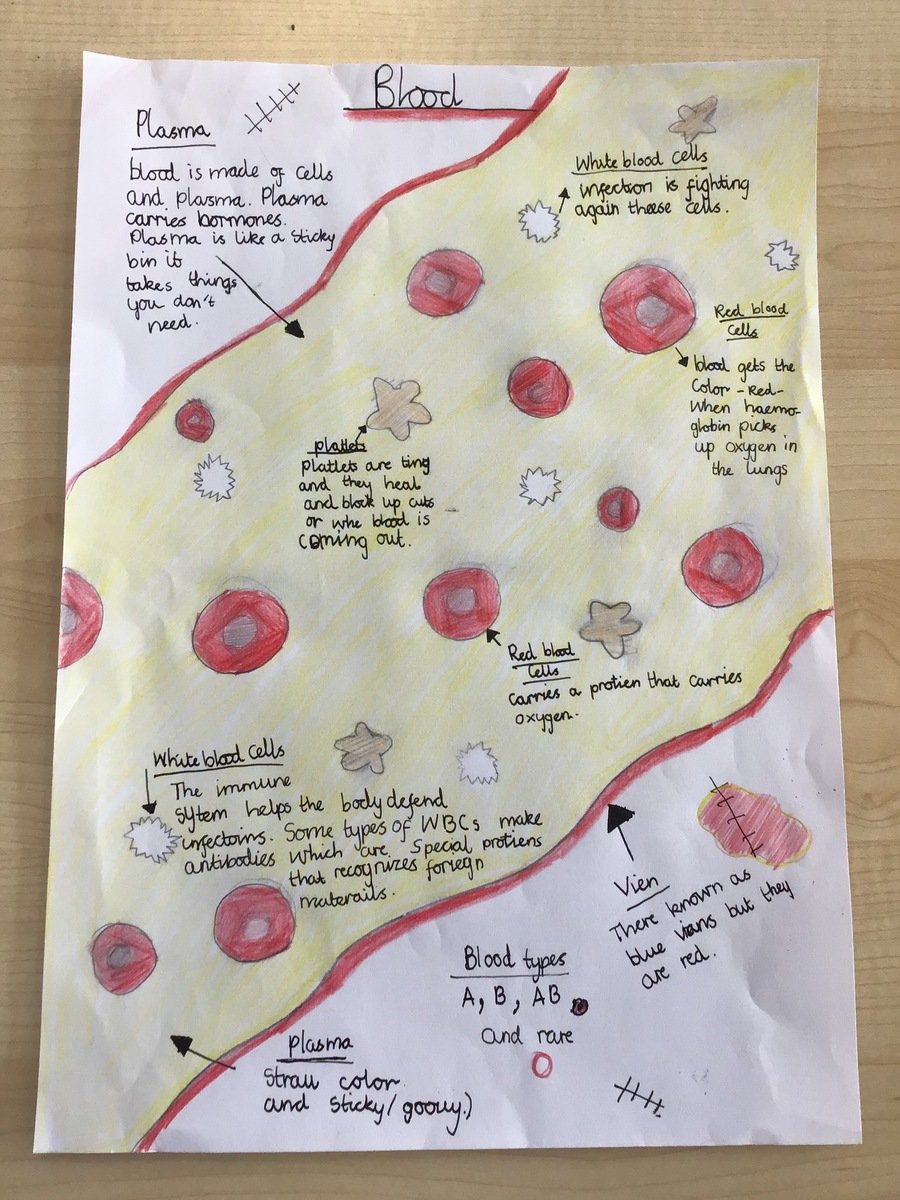 Blood
Plasma
blood is made of cells
and plasma. Plasma
carries hormones.
Plasma is like a sticky
bin it
takes things
you don't
need.
White blood cells
infection is fighting
again theese cells.
Red blood
cells
blood gets the
color - Red -
when haemo-
globin picks
up oxygen in
the lungs
platlets
platlets are tiny
and they heal
and block up cuts
or whe blood is
coming out.
Red blood
cells
carries a protien that carries
oxygen.
White blood cells
The immune
sytem helps the body defend
infectoins. Some types of WBCs make
antibodies which are special protiens
that recognizes foriegn
materails.
Vien
There known as
blue viens but they
are red.
Blood types
A, B, AB
and rare
O
plasma
Straw color
and sticky/goouy.)